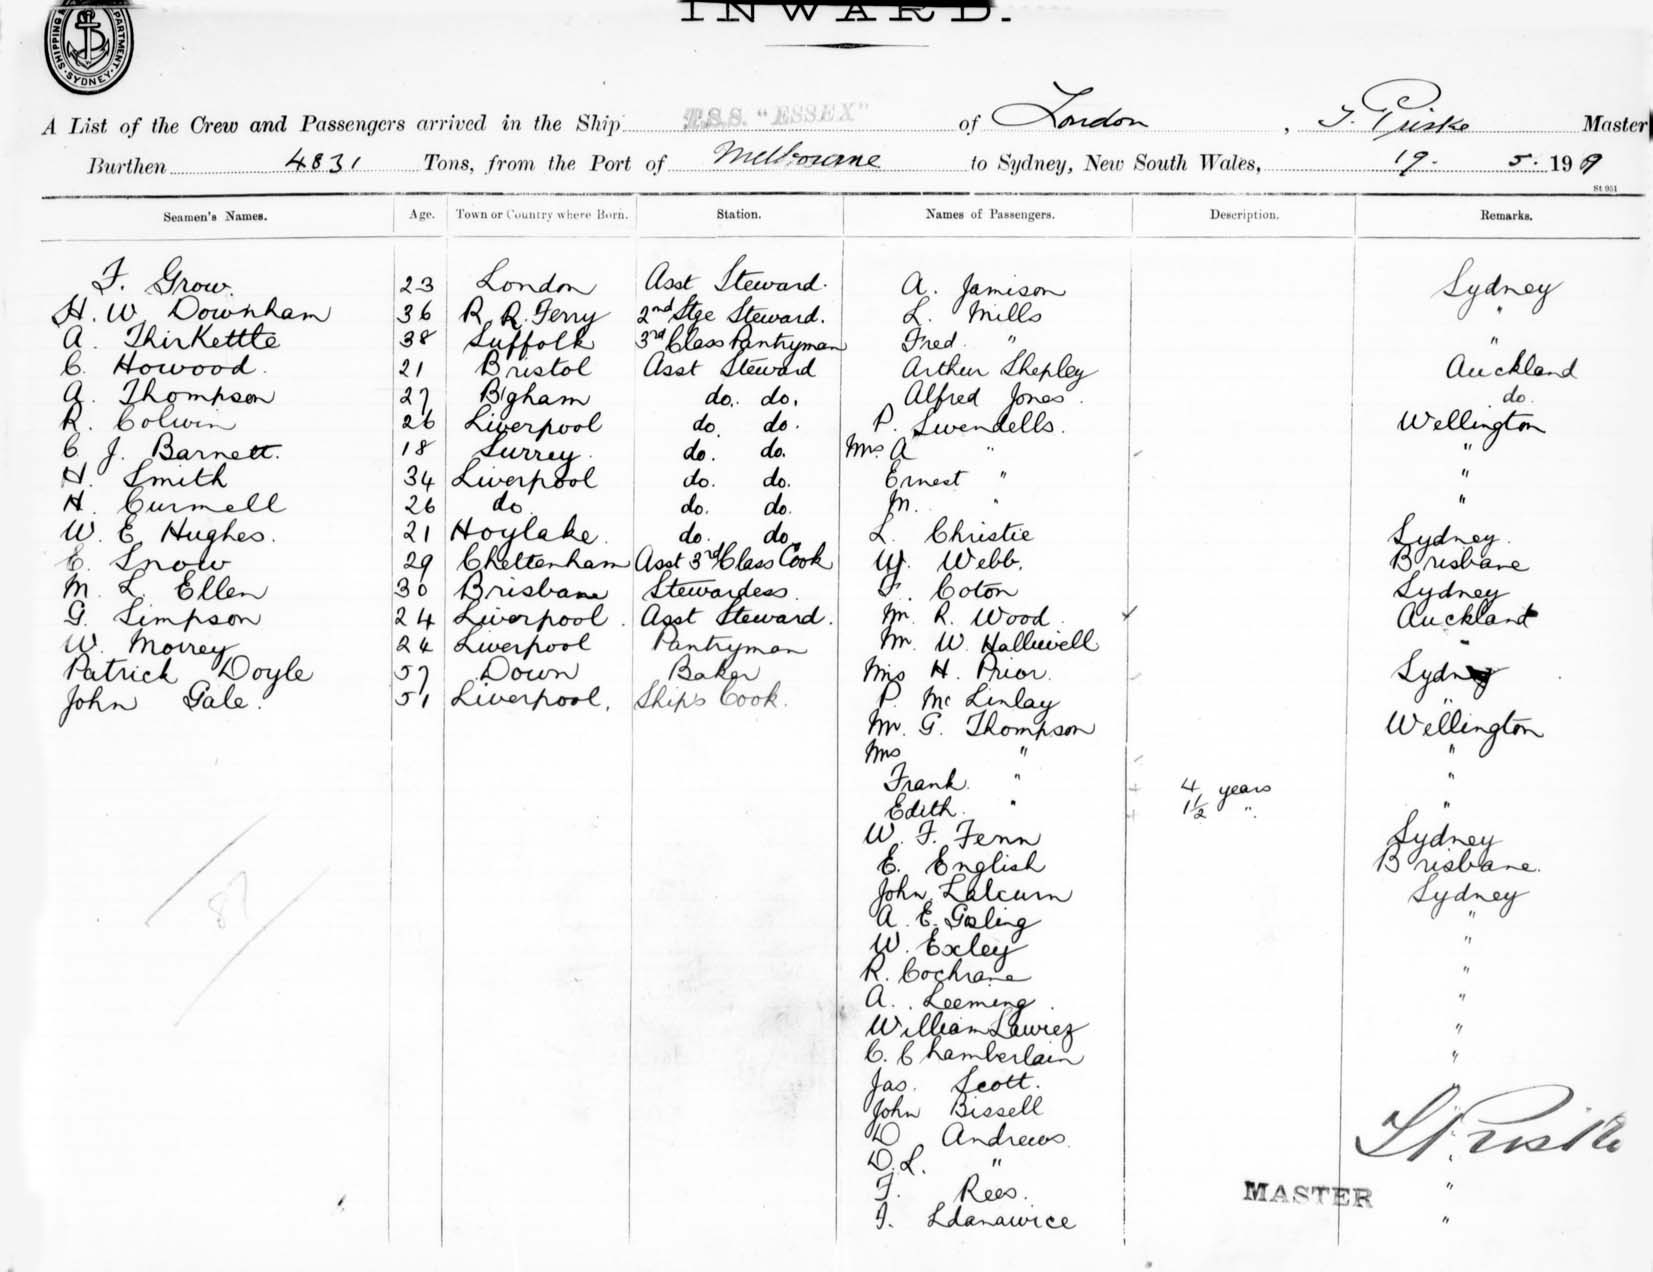 INWARD.
SHIPPING DEPARTMENT. SYDNEY.
A List of the Crew and Passengers arrived in the Ship T.S.S. "ESSEX" of London, J. Priske Master
Burthen 4831 Tons, from the Port of Melbourne to Sydney, New South Wales, 19. 5. 1909
St 951
Seamen's Names. Age. Town or Country where Born. Station. Names of Passengers. Description. Remarks.
F. Grow. 23 London Asst Steward. A. Jamison Sydney
H. W Downham 36 R. R. Ferry 2nd Stge Steward. L. Mills "
A. Thirkettle 38 Suffolk 3rd Class Pantryman Fred " "
C. Howood. 21 Bristol Asst Steward Arthur Shepley Auckland
A. Thompson 27 B'gham do. do. Alfred Jones. do.
R. Colwin 26 Liverpool do. do. P. Swendells. Wellington
C. J. Barnett. 18 Surrey. do. do. Mrs. A " "
H. Smith 34 Liverpool do. do. Ernest " "
H. Curmell 26 do. do. do. M. " "
W. E Hughes. 21 Hoylake. do. do. L. Christie Sydney.
E. Snow 29 Cheltenham Asst 3rd Class Cook W. Webb. Brisbane
M. L. Ellen 30 Brisbane Stewardess. Coton Sydney
G. Simpson 24 Liverpool. Asst Steward. Mr. R. Wood Auckland
W. Morrey 24 Liverpool Pantryman Mr. W. Halliwell "
Patrick Doyle 57 Down Baker Miss H. Prior. Sydney
John Gale. 51 Liverpool. Ships Cook. P. Mc Linlay "
Mr. G. Thompson Wellington
Mrs " "
Frank. " 4 years "
Edith. " 1½ " "
W. F. Fenn Sydney
E. English Brisbane.
John Lalcurn Sydney
A. E. Gosling "
W. Exley "
R. Cochrane "
A. Leeming "
William Lawiez "
C. Chamberlain "
Jas. Scott.
John Bissell
D Andrews
D. L. "
F. Rees. "
MASTER
Ldanawice "
87